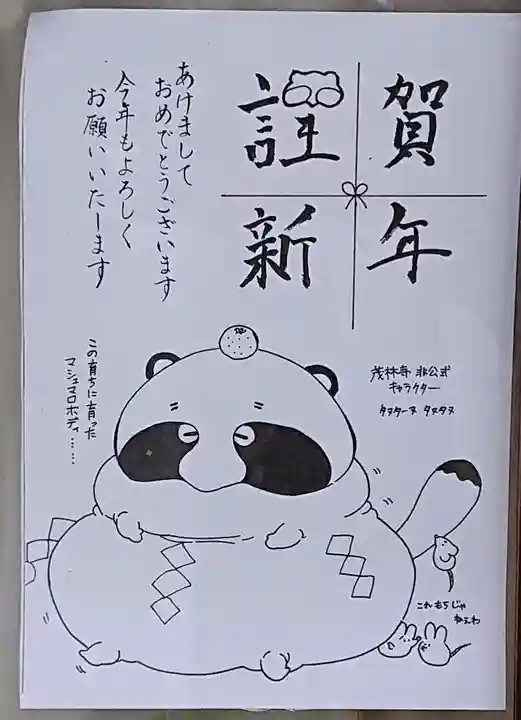 謹賀
新年
あけまして
おめでとうございます
今年もよろしく
お願いいたーます
この育ちに育った
マシュマロボディ……
茂林寺 非公式
キャラクター
タヌターヌ タヌタヌ
これもちじゃ
ねぇわ